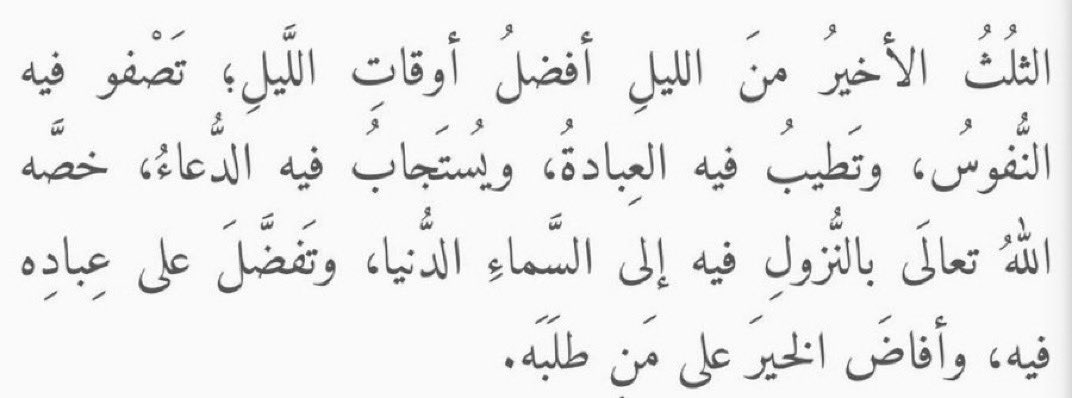 الثلُثُ الأخيرُ منَ الليلِ أفضلُ أوقاتِ اللَّيلِ؛ تَصْفو فيه
النُّفوسُ، وتَطيبُ فيه العِبادةُ، ويُستَجابُ فيه الدُّعاءُ، خصَّه
اللهُ تعالَى بالنُّزولِ فيه إلى السَّماءِ الدُّنيا، وتَفضَّلَ على عِبادِه
فيه، وأفاضَ الخيرَ على مَن طلَبَه.